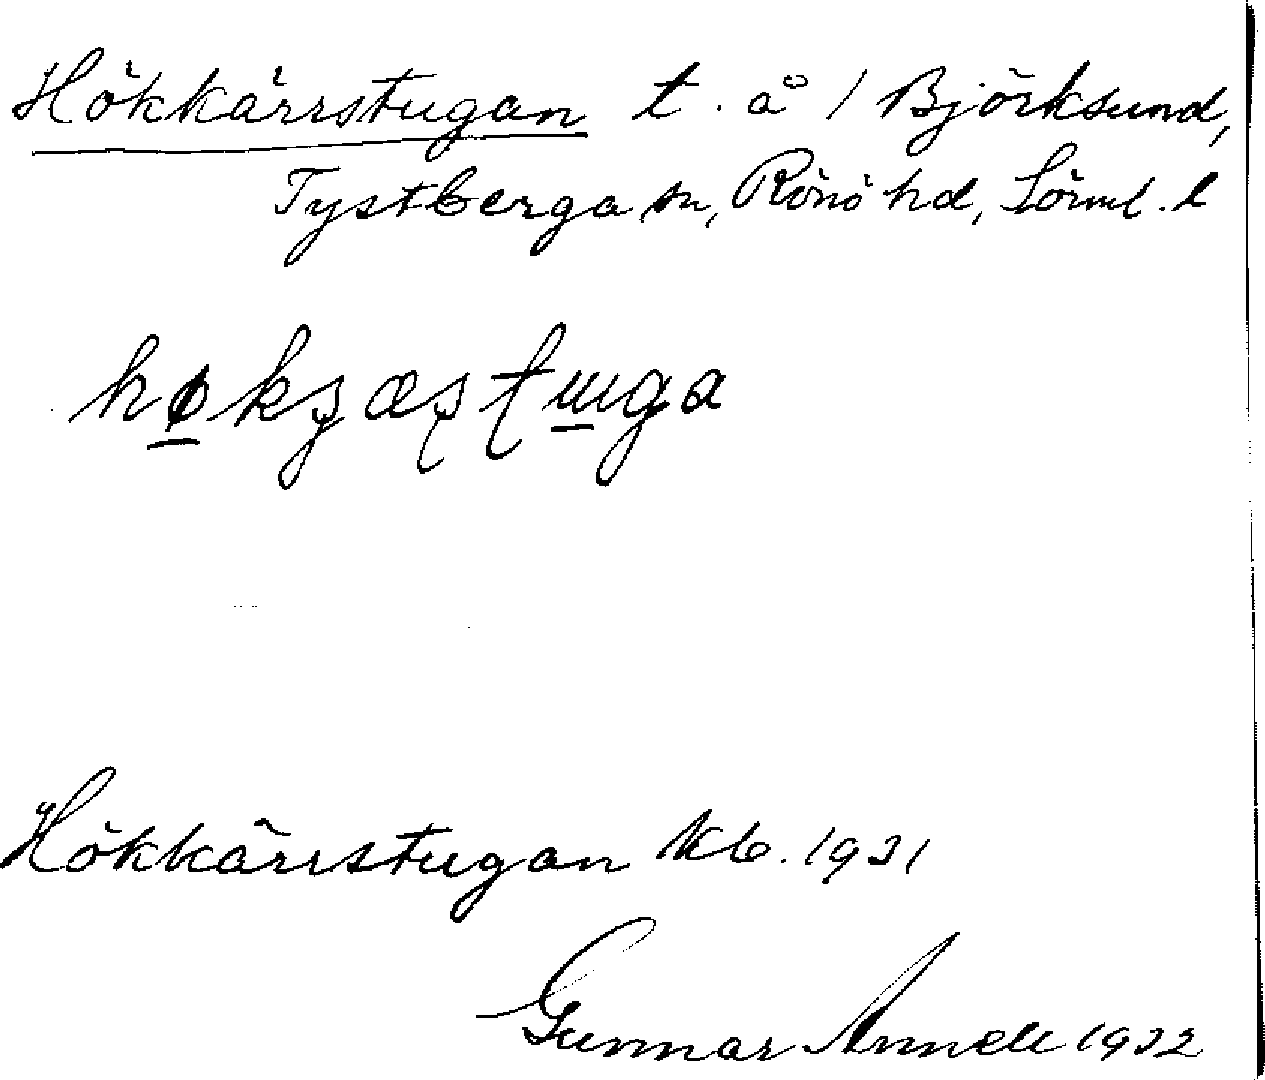 Hökkärrstugan t. å / Björksund,
Tystberga sn, Rönö hd, Sörml. l
Hökkärrstugan kb. 1931
Gunnar Annell 1932